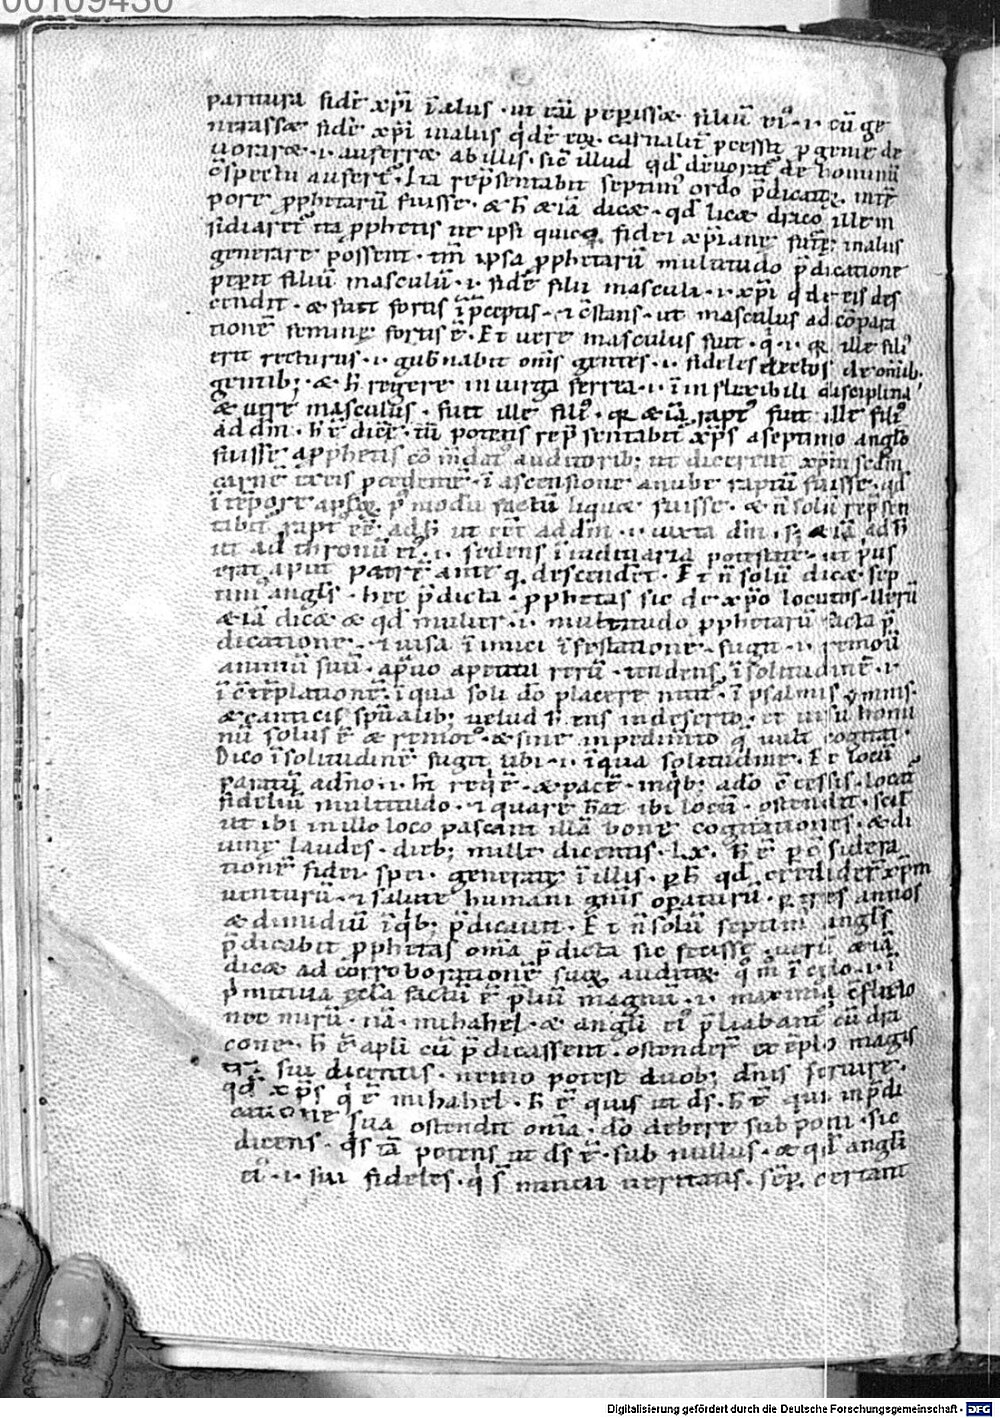 00109430
paritura fidē xp̄i ī alus · ut cū peperisset filiū eiꝰ · i · cū ge
nerasset fidē xp̄i in aliis
uoraret · i · auferret ab illis · sic illud qđ deuorat de hominū
ꝯspectu aufert · Ita rep̄sentabit septimꝰ ordo p̄dicatoꝝ · in tē
pore ꝓphetarū fuisse · & h̄ & iā dicet · qđ licet draco ille in
sidiaret ita ꝓphetis ne ipsi fidei xp̄iane in alus
generare possent · tm̄ ipsa ꝓphetarū multitudo p̄dicatione
peperit filiū masculū · i · fidē filii masculi · i · xp̄i q de eis des
cendit · & fuit fortis ī p̄ceptis · ⁊ ꝯstans · ut masculus ad cōpara
tionē feminę fortis ē · Et uere masculus fuit · ille filiꝰ
erit recturus · i · gubnabit om̄s gentes · i · fideles electos de om̄ib
gentibꝫ · & h̄ regere in uirga ferrea · i · ī inflexibili disciplina
& uere masculus · fuit ille filiꝰ · & iā raptꝰ fuit ille filiꝰ
ad dm̄ · potens rep̄sentabit xp̄s a septimo anglo
fuisse a ꝓphetis auditoribꝫ ut dicerent xp̄m scdm̄
carnē ex eis p̄cedentē · ī ascensione a nube raptū fuisse · qđ
ī tēpore modū factū liquet fuisse · & n̄ solū rep̄sen
tabit raptꝰ eē ad h̄ ut eēt ad dm̄ · i · iuxta dm̄ · sꝫ & iā ad h̄
ut ad thronū eiꝰ · i · sedens ī iudiciaria potestate · ut p̄us
erat aput patrē ante q̄ descendēt · Et n̄ solū dicet sep
timꝰ angl̄s · hec p̄dicta · ꝓphetas sic de xp̄o locutos · uerū
& iā dicet & qđ mulier · i · multitudo ꝓphetarū facta p̄
dicatione · ⁊ uisa ī imici ī festatione · fugit · i · remouit
animū suū · appetitu rerū · tendens ī solitudinē · i ·
ī ꝯtēplationē · ī qua soli dō placere ī psalmis ymnis
& canticis spūalibꝫ uelud h̄ ens in deserto · et uisu homi
nū solus ē & remotꝰ · & sine inpedimto q̄ uult cogitat ·
Dico ī solitudinē fugit ubi · i · ī qua solitudine · Et locū
paratū a dno · i · ht̄ requiē · & pacē · in qbꝫ a dō ꝯcessis · locata
fideliū multitudo · ⁊ quare h̄at ibi locū · ostendit · scil
ut ibi in illo loco pascant illā bone cogitationes · & di
uinę laudes · diebꝫ mille ducentis · LX · h̄ ē ꝑ ꝯsidera
tionē fidei · spei · generatę ī illis · ꝑ h̄ qđ crediderunt xp̄m
uenturū · ⁊ salutē humani gn̄is opaturū · ꝑ tres annos
& dimidiū ī qbꝫ p̄dicauit · Et n̄ solū septimꝰ angl̄s
p̄dicabit ꝓphetas om̄ia p̄dicta sic fecisse · uerū & iā
dicet ad corroborationē suoꝝ auditoꝝ ī celo · i · ī
p̄mitiua ęcl̄a factū ē p̄liū magnū · i · maximꝰ ꝯflictꝰ
nec mirū · nā · mihahel · & angli eiꝰ p̄liabant cū dra
cone · h̄ ē apli cū p̄dicassent · ostender exēplo magis
tri sui dicentis · nemo potest duobꝫ dn̄is seruire ·
qđ xp̄s q̄ ē mihahel · h̄ ē quis ut ds̄ · h̄ ē qui in p̄di
catione sua ostendit om̄ia · dō debere subponi · sic
dicens · q̄s tā potens ut ds̄ ē · sub nullus · & qđ angli
eiꝰ · i · sui fideles · q̄ s̄ nuncii ueritatis · semp certant
Digitalisierung gefördert durch die Deutsche Forschungsgemeinschaft - DFG